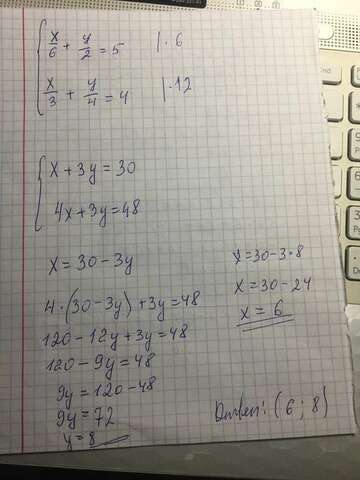 x/6 + y/2 = 5 | · 6
x/3 + y/4 = 4 | · 12
x + 3y = 30
4x + 3y = 48
x = 30 - 3y
4 · (30 - 3y) + 3y = 48
120 - 12y + 3y = 48
120 - 9y = 48
9y = 120 - 48
9y = 72
y = 8
x = 30 - 3 · 8
x = 30 - 24
x = 6
Ответ: (6 ; 8)